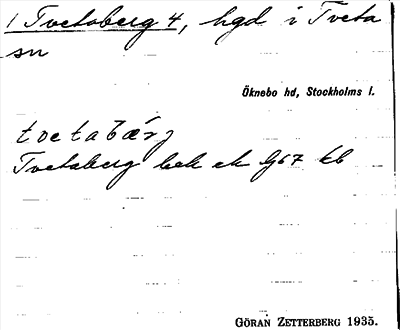 1 Tvetaberg 4, hgd i Tveta
sn
Öknebo hd, Stockholms l.
tvetabærj
Tvetaberg bek ek G67 kb
GÖRAN ZETTERBERG 1935.